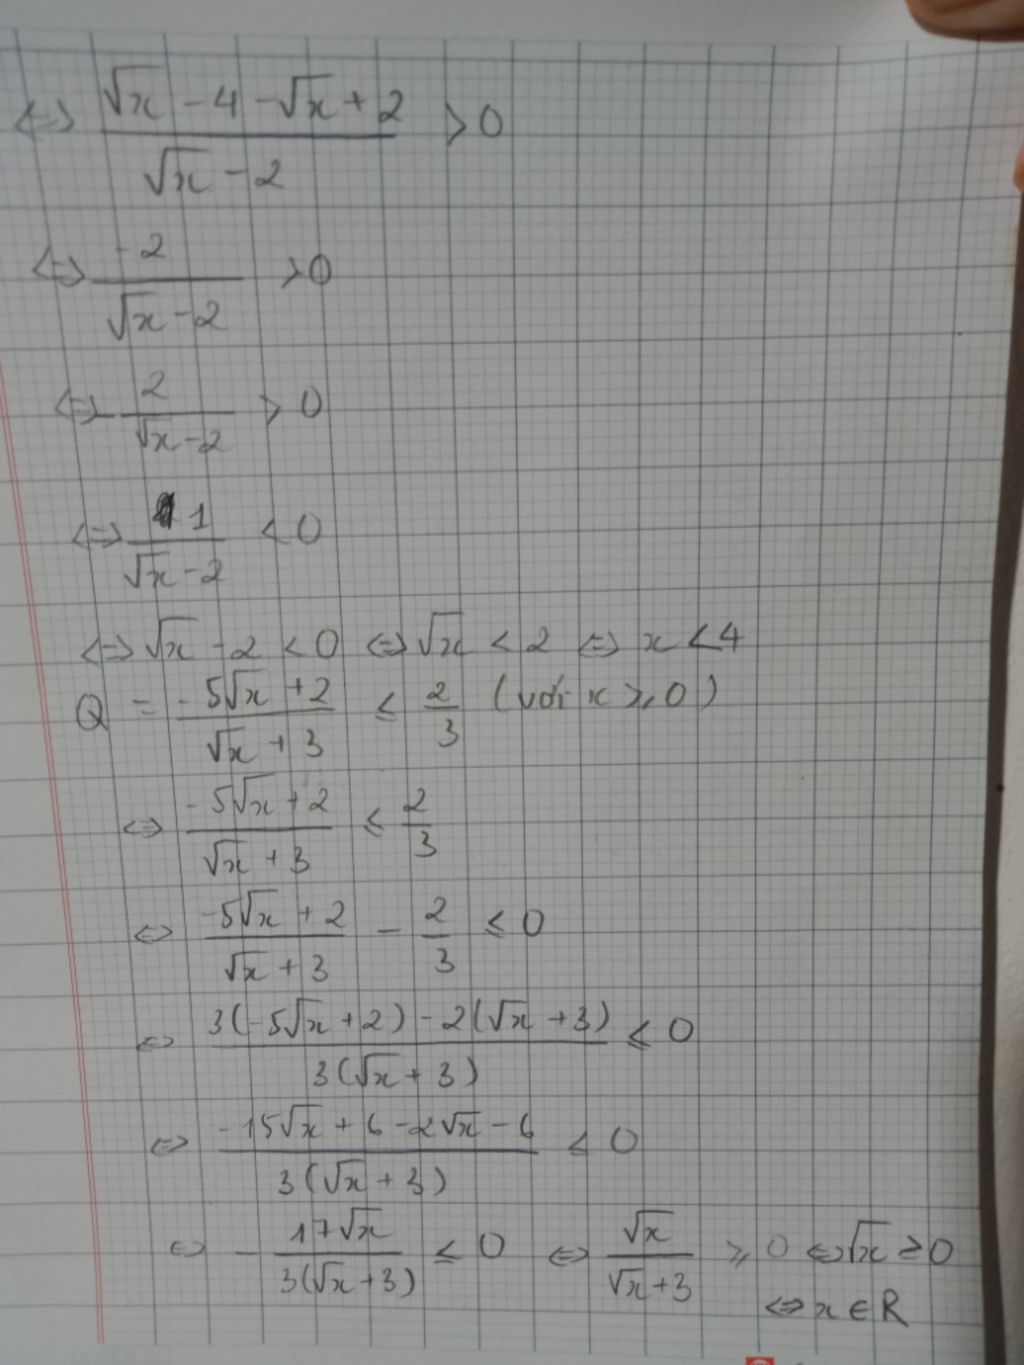 ⇔ (√x - 4 - √x + 2)/(√x - 2) > 0
⇔ (-2)/(√x - 2) > 0
⇔ - 2/(√x - 2) > 0
⇔ 1/(√x - 2) < 0
⇔ √x - 2 < 0 ⇔ √x < 2 ⇔ x < 4
Q = (-5√x + 2)/(√x + 3) ≤ 2/3 (với x ≥ 0)
⇔ (-5√x + 2)/(√x + 3) ≤ 2/3
⇔ (-5√x + 2)/(√x + 3) - 2/3 ≤ 0
⇔ (3(-5√x + 2) - 2(√x + 3))/(3(√x + 3)) ≤ 0
⇔ (-15√x + 6 - 2√x - 6)/(3(√x + 3)) ≤ 0
⇔ - 17√x/(3(√x + 3)) ≤ 0 ⇔ √x/(√x + 3) ≥ 0 ⇔ √x ≥ 0
⇔ x ∈ R